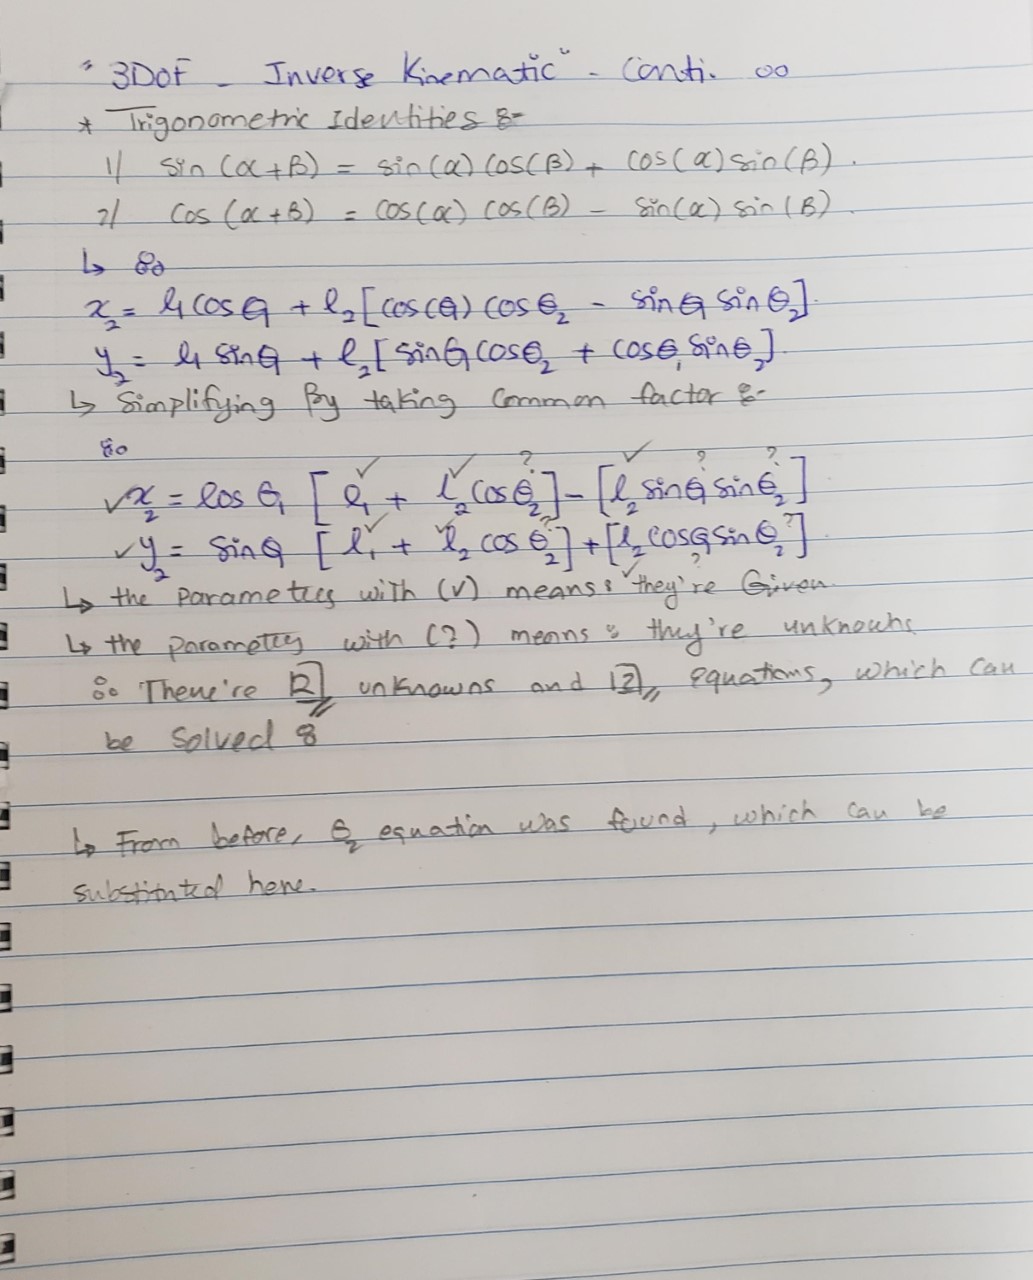 "3DOF - Inverse Kinematic" - Conti. ∞
* Trigonometric Identities :-
1/ sin (α+β) = sin(α) cos(β) + cos(α) sin(β).
2/ cos (α+β) = cos(α) cos(β) - sin(α) sin(β).
↳ So
x₂ = l₁ cosθ₁ + l₂ [cos(θ₁) cosθ₂ - sinθ₁ sinθ₂].
y₂ = l₁ sinθ₁ + l₂ [sinθ₁ cosθ₂ + cosθ₁ sinθ₂].
↳ Simplifying By taking Common factor :-
So
✓x₂ = cos θ₁ [l₁✓ + l₂✓ cosθ₂?] - [l₂✓ sinθ₁? sinθ₂?]
✓y₂ = sinθ₁ [l₁✓ + l₂✓ cosθ₂?] + [l₂✓ cosθ₁? sinθ₂?]
↳ the parameters with (✓) means: they're Given.
↳ the parameters with (?) means: they're unknowns
∴ There're 2 unknowns and 2, equations, which can
be solved :
↳ From before, θ₂ equation was found, which can be
substituted here.